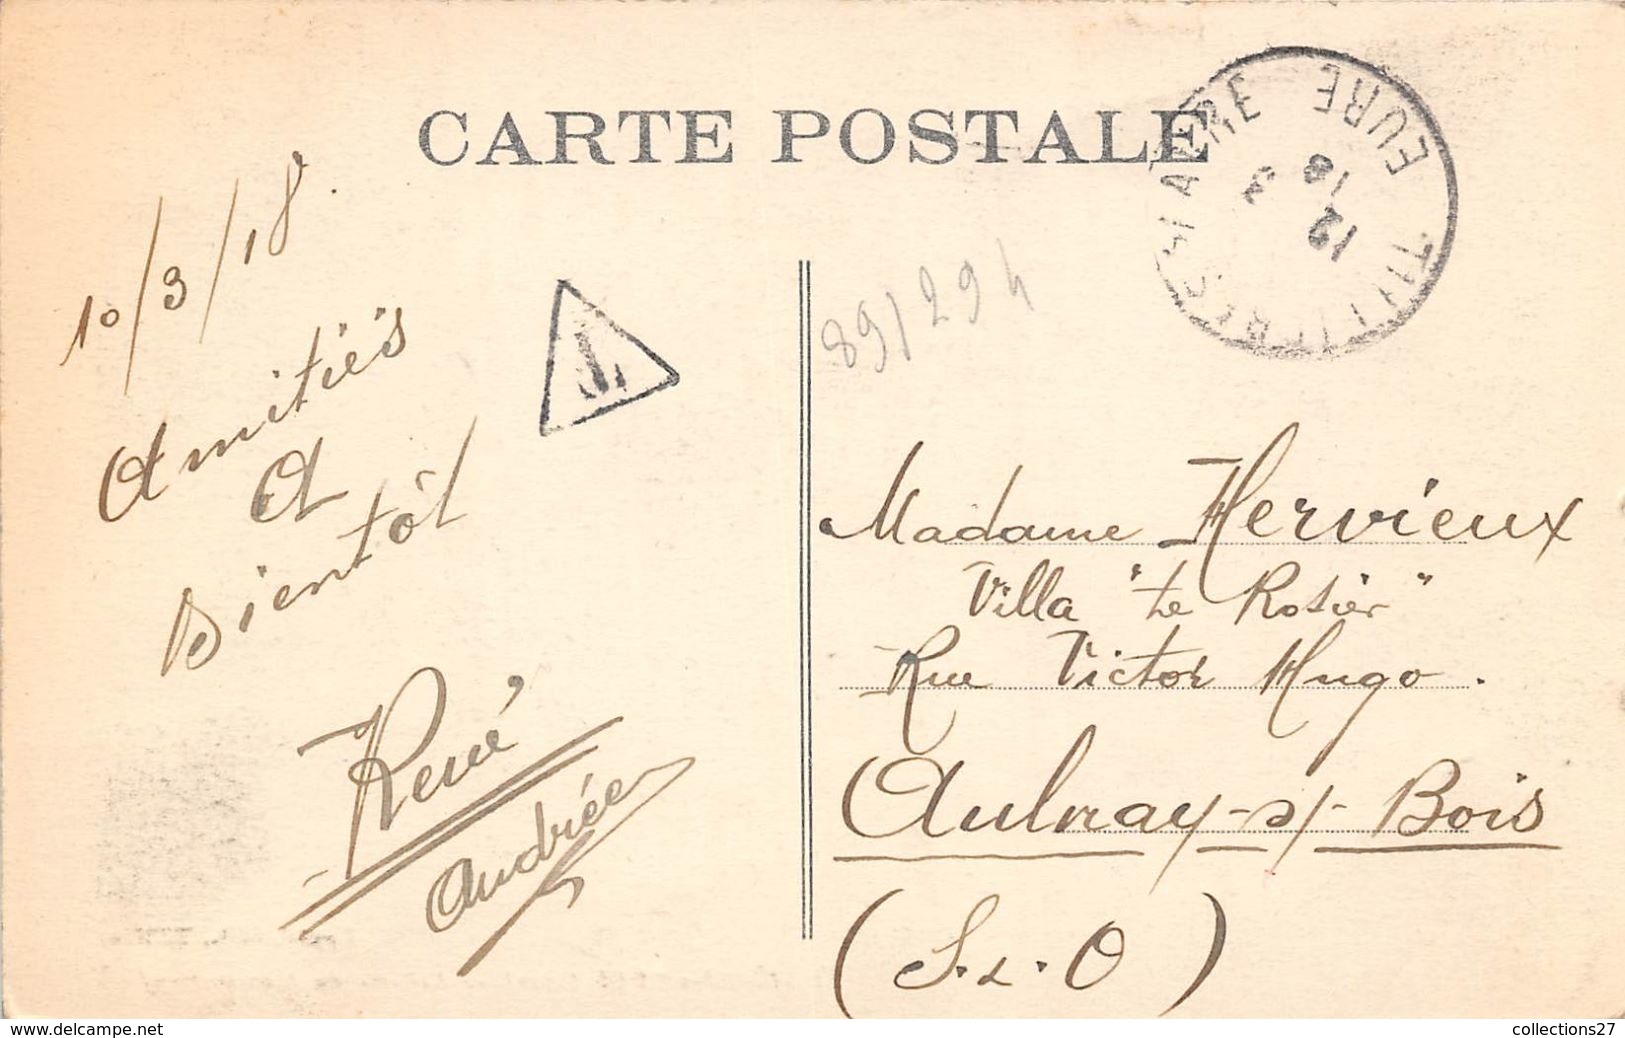 CARTE POSTALE
EURE
12
3
18
10/3/18.
Amitiés
A
Bientôt
René
Andrée
89/294
Madame Hervieux
Villa "Le Rosier"
Rue Victor Hugo.
Aulnay-s/-Bois
(S.&.O)
T
www.delcampe.net
collections27